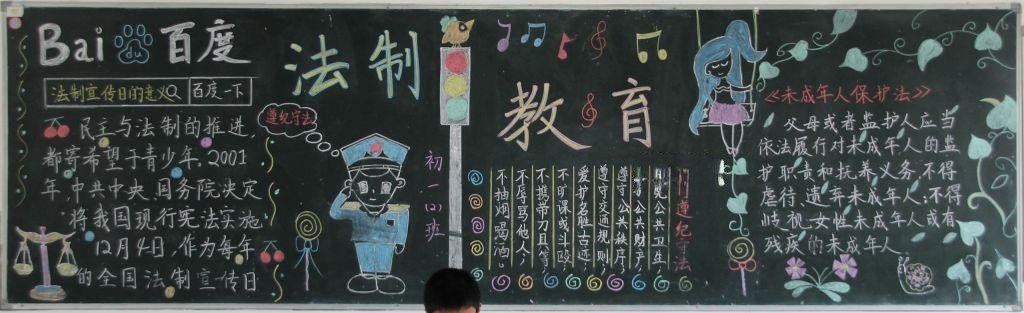 Bai 百度
法制宣传日的意义 百度一下
民主与法制的推进，
都寄希望于青少年。2001
年，中共中央、国务院决定
将我国现行宪法实施
12月4日，作为每年
的全国法制宣传日
遵纪守法
法制
教育
初一(2)班
遵纪守法
公共卫生
公共财产
遵守公共秩序
遵守交通规则
爱护名胜古迹
不旷课或斗殴
不携带刀具等
不辱骂他人
不抽烟喝酒
《未成年人保护法》
父母或者监护人应当
依法履行对未成年人的监
护职责和抚养义务，不得
虐待、遗弃未成年人；不得
歧视女性未成年人或有
残疾的未成年人